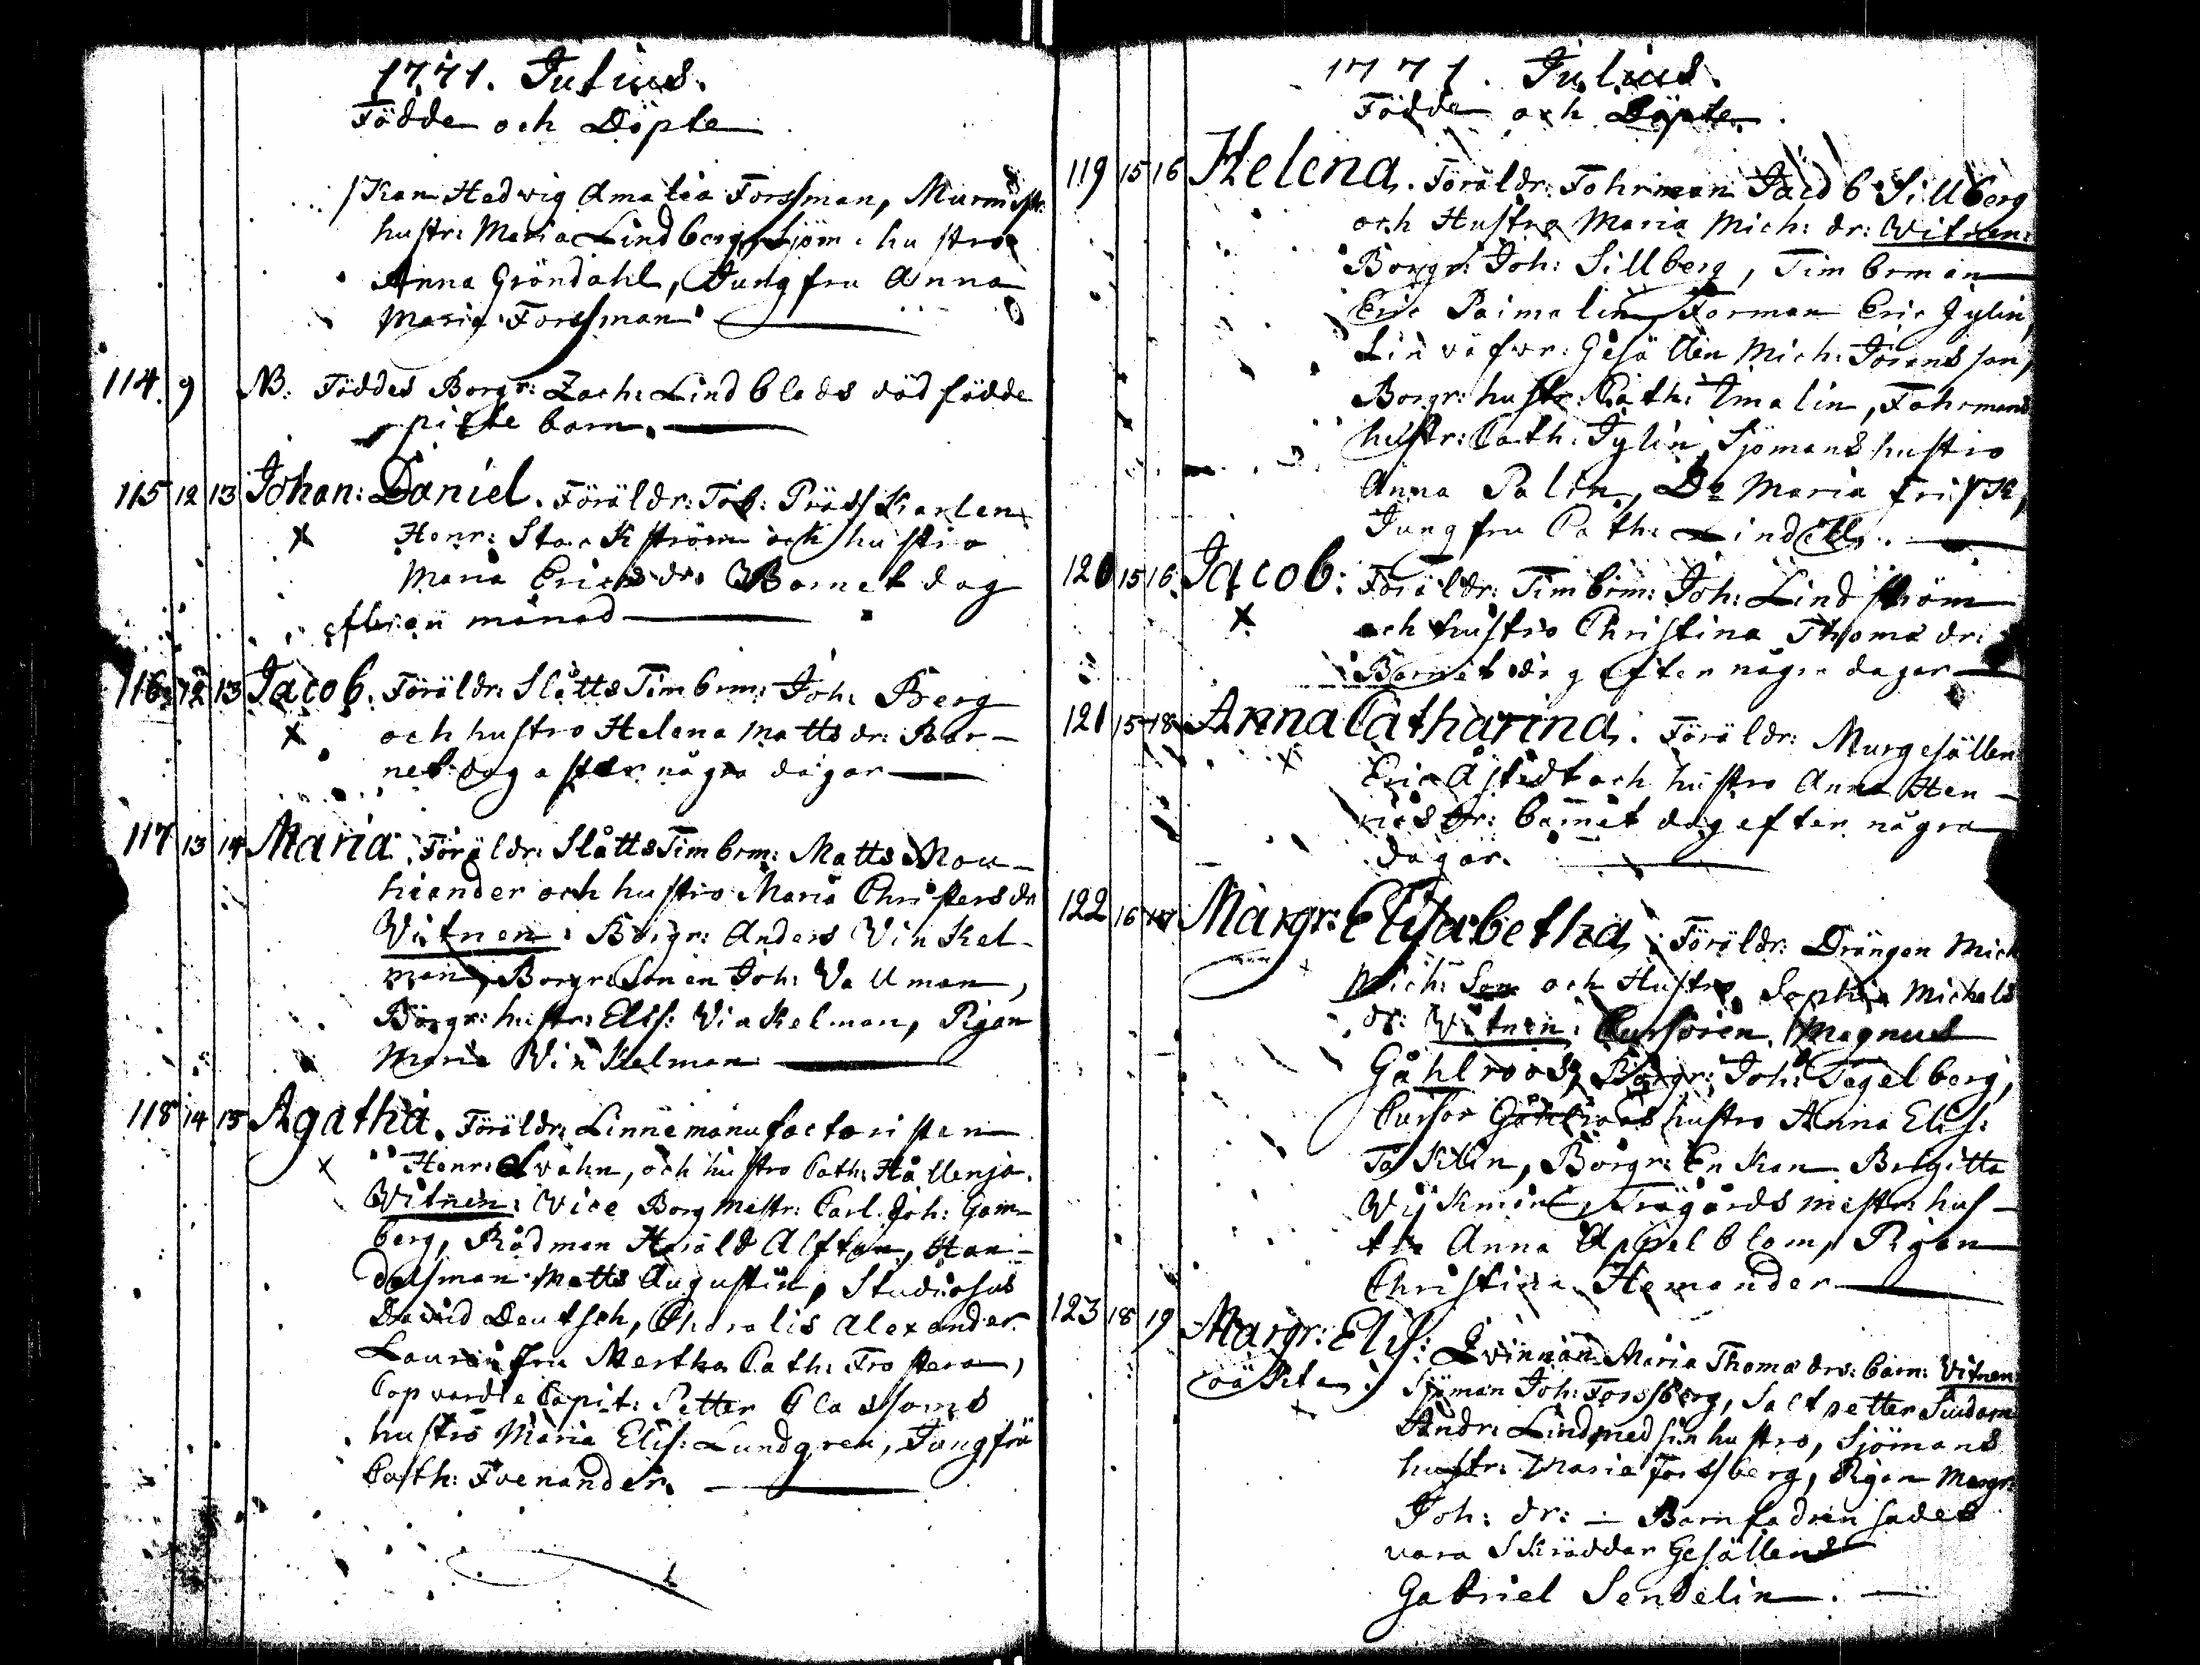 1771. Julius.
Födde och Döpte
/Kan Hedvig Amalia Forssman, Murmstr:
hustr: Maria Lindberg, Sjöm: hustro
Anna Gröndahl, Jungfru Anna
Maria Forssman
114. 9 NB. Föddes Borgr: Zach: Lindblads död födde
pilte barn.
115 12 13 Johan: Daniel. Föräldr: Tob:
x Henr: Stackström och hustro
Maria Erics dr: Barnet dog
efter en månad
116 12 13 Jacob. Föräldr: Slåtts Timbrm: Joh: Berg
x och hustro Helena Matts dr: Bar-
net dog after några dagar
117 13 14 Maria. Föräldr: Slåtts Timbrm: Matts Mou-
hiander och hustro Maria Christers dr
Witnen: Borgr: Anders Vinkel-
man, Borgre Sonen Joh: Vallman,
Borgr: hustr: Elis: Vinkelman, Pigan
Maria Vinkelman
118 14 15 Agatha. Föräldr: Linnemanufactoristen
x Henr: Svahn, och hustro Cath: Hållenja.
Witnen: Vice Borgmestr: Carl Joh: Gam-
berg, Rådman Harald Alftan, Han-
delsman Matts Augustin, Studiosus
David Deutsch, Choralis Alexander
Laurin fru Mertha Cath: Trostera,
Copvardie Capit: Petter Clasons
hustro Maria Elis: Lundgren, Jungfru
Cath: Fvenander.
1771. Julius.
Födde och Döpte
119 15 16 Helena. Föräldr: Fohrman Jacob Sillberg
och Hustro Maria Mich: dr: Witnen:
Borgr: Joh: Sillberg, Timberman
Eric Paimalin, Forman Eric Jylin,
Linväfvr: Gesällen Mich: Jöransson,
Borgr: hustr: Cath: Imalin, Fohrmans
hustr: Cath: Jylin, Sjömans hustro
Anna Palin, Do Maria Frisk,
Jungfru Cath: Lindell.
120 15 16 Jacob: Föräldr: Timbrm: Joh: Lindström
x och hustro Christina Thomæ dr:
Barnet dog efter någre dagar
121 15 18 Anna Catharina. Föräldr: Murgesällen
x Eric Åstedt och hustro Anna Hen-
rics dr: barnet dog efter några
dagar.
122 16 Margr: Elisabetha. Föräldr: Drängen Mich
x Mich: Son och Hustro Sophia Michels
dr: Witnen: Cursoren Magnus
Gåhlroos, Borgr: Joh: Tegelberg,
Cursor Gåhlroos hustro Anna Elis:
Borgr: Enkan Brigitta
Trägårds mestr: hus-
tro Anna Appelblom, Pigan
Christina Hemander
123 18 19 Margr: Elis: Qvinnan Maria Thomæ drs: barn: Vitnen:
oäkta. Sjöman Joh: Forssberg, Saltpetter Siudarn
x Andr: Lind med sin hustro, Sjömans
hustr: Maria Forssberg, Pigan Margr:
Joh: dr: — Barnfadren sades
vara Skräddar Gesällens
Gabriel Sendelin.